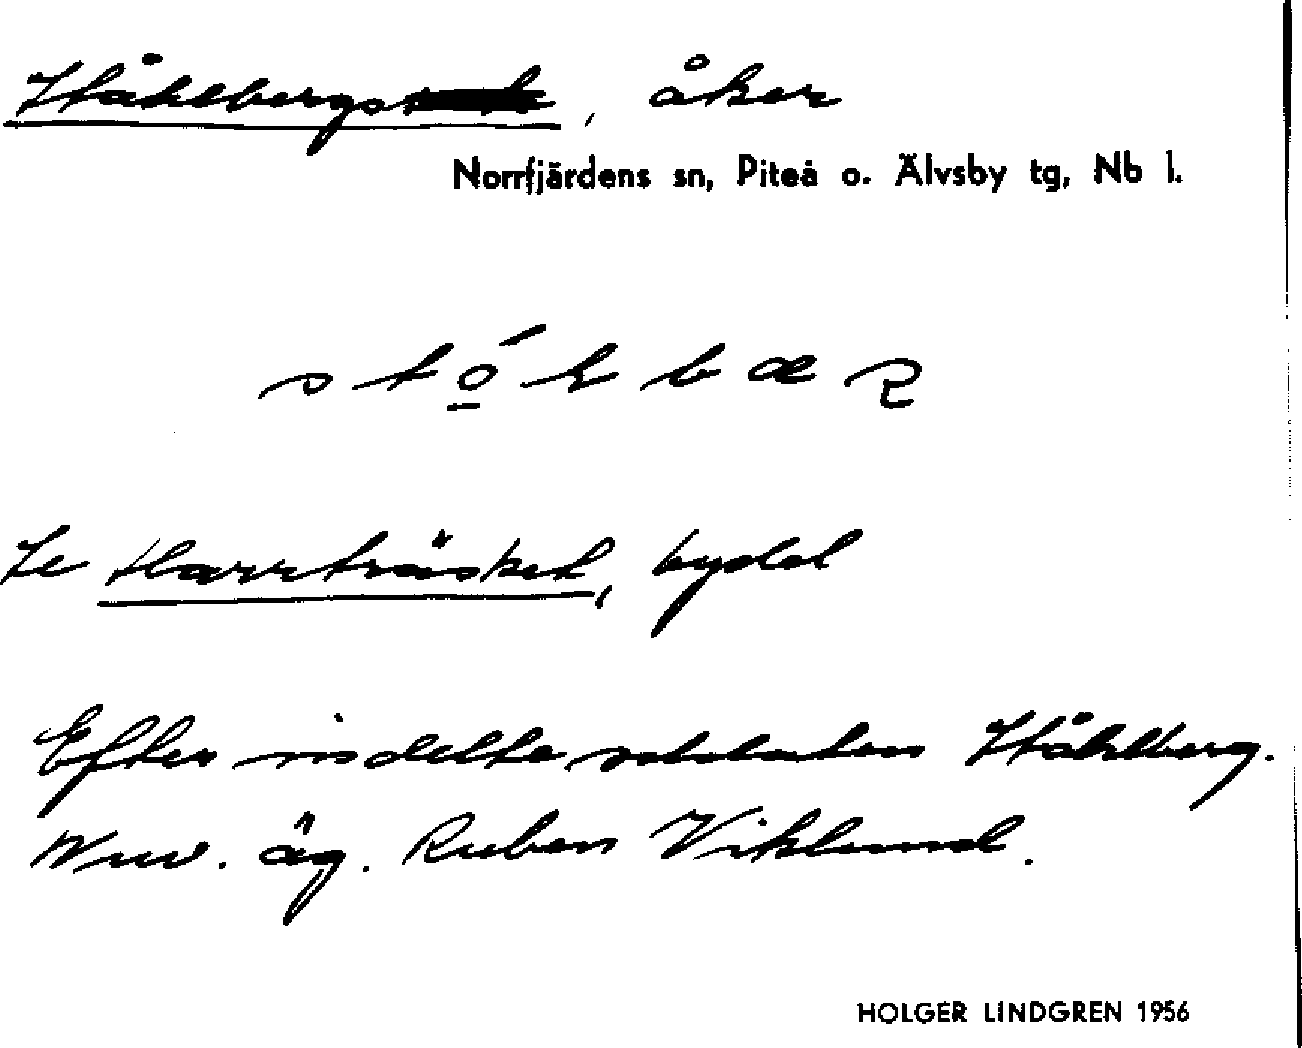 Ståhlbergs, åker
Norrfjärdens sn, Piteå o. Älvsby tg, Nb l.
Se Harrträsket, bydel
Efter indelte soldaten Ståhlberg.
Nuv. äg. Ruben Viklund.
HOLGER LINDGREN 1956